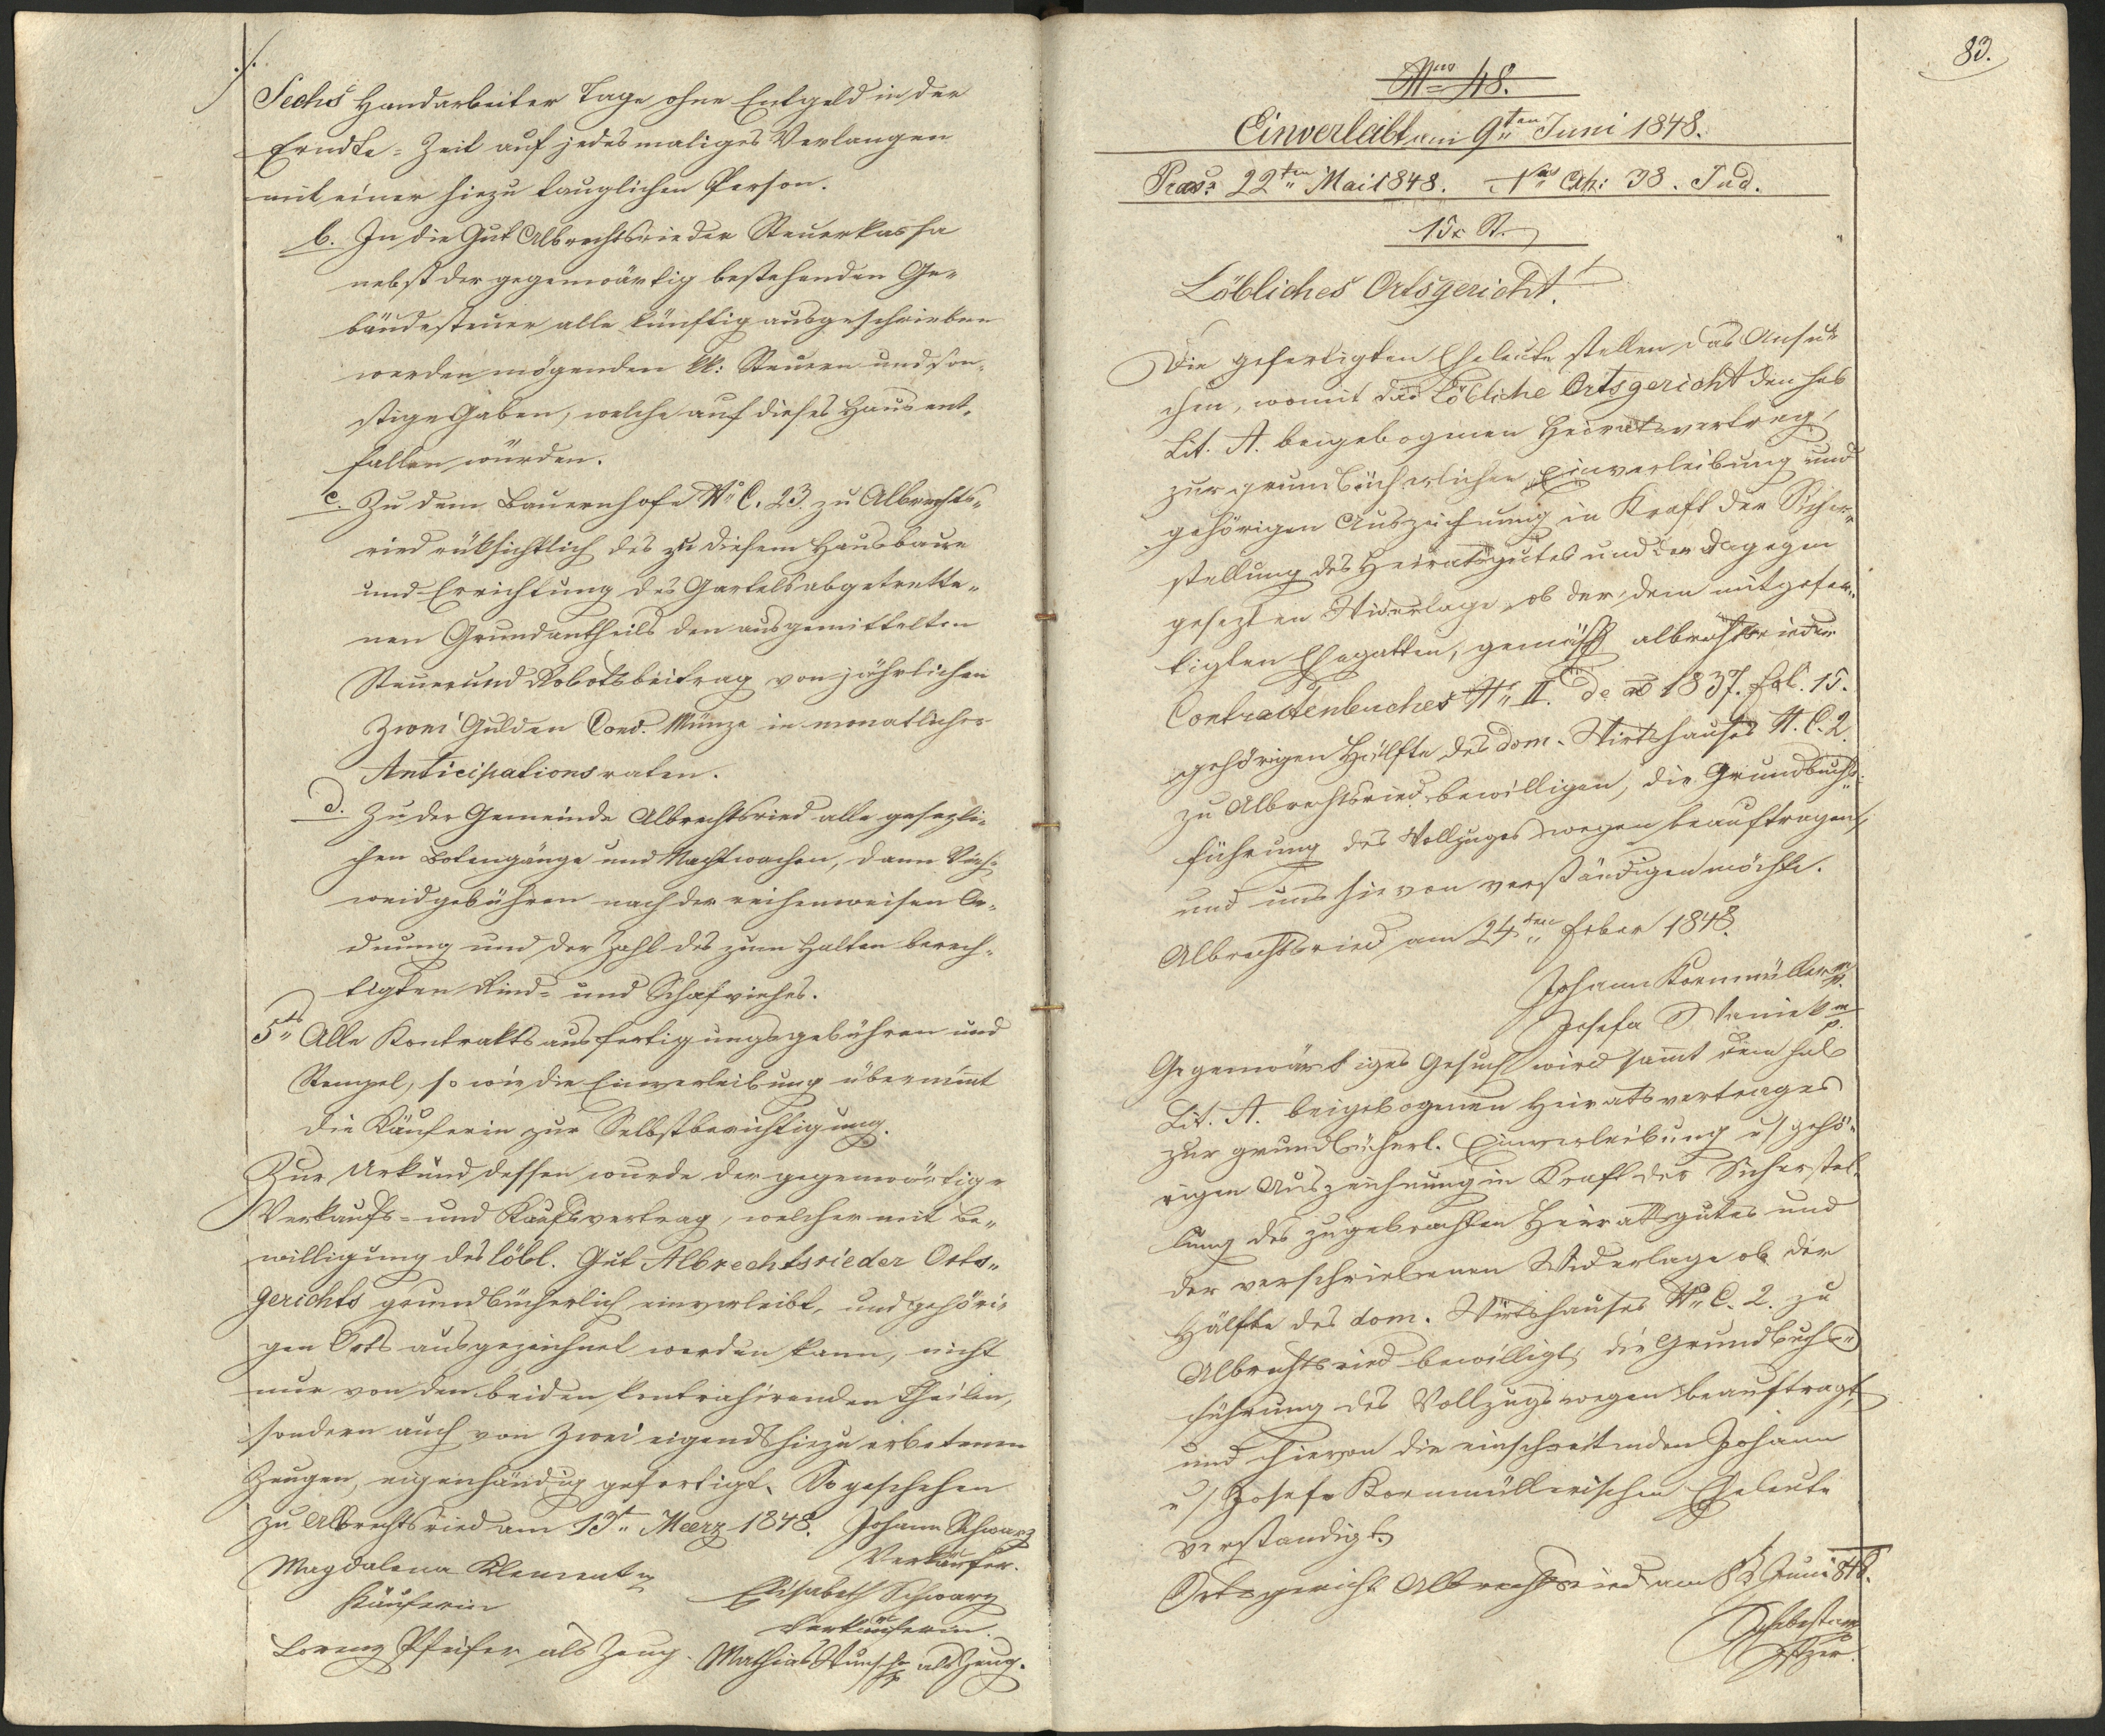 ./.
Sechs Handarbeiter Tage ohne Entgeld in der
Erndte=Zeit auf jedesmaliges Verlangen
mit einer hiezu tauglichen Person.
b. In die Gut Albrechtsrieder Steuerkassa
nebst der gegenwärtig bestehenden Ge„
bäudesteuer alle künftig ausgeschrieben
werden mögenden kk: Steuern und son„
stige Gaben, welche auf dieses Haus ent„
fallen würden.
c. Zu dem Bauernhofe No C. 23. zu Albrechts„
ried rüksichtlich des zu diesem Hausbaue
und Errichtung des Gartels abgetrette„
nen Grundantheils den ausgemittelten
Steuer und Robotsbeitrag von jährlichen
Zwei Gulden Conv. Münze in monatlicher
Anticipationsraten.
d. Zu der Gemeinde Albrechtsried alle gesezli„
chen Botengänge und Nachtwachen, dann Vieh„
weidgebühren nach der reihenweisen Or„
dnung und der Zahl des zum Halten berech„
tigten Rind= und Schafviehes.
5ts Alle Kontraktsausfertigungsgebühren und
Stempel, so wie die Einverleibung übernimt
die Käuferin zur Selbstberichtigung.
Zur Urkund dessen wurde der gegenwärtige
Verkaufs= und Kaufsvertrag, welcher mit Be„
willigung des löbl. Gut Albrechtsrieder Orts„
gerichts grundbücherlich einverleibt, und gehöri„
gen Orts ausgezeichnet werden kann, nicht
nur von den beiden kontrahirenden Theilen,
sondern auch von Zwei eigends hiezu erbetenen
Zeugen, eigenhändig gefertigt. So geschehen
zu Albrechtsried am 13t„ Meerz 1848. Johann Schwarz
Verkäufer.
Magdalena Klement
Käuferin
Elisabeth Schwarz
Verkäuferin.
Lorenz Pfeifer als Zeug. Mathias Wunsch als Zeug.
83.
Nro 48.
Einverleibt am 9ten Juni 1848.
Praes: 22ten Mai 1848. Nro Exh: 38. Jud.
15x St.
Löbliches Ortsgericht!
Die gefertigten Eheleute stellen das Ansu„
chen, womit das Löbliche Ortsgericht den sub
Lit. A. beigebogenen Heiratsvertrag,
zur grundbücherlichen Einverleibung und
gehörigen Auszeichnung in Kraft der Sicher„
stellung des Heiratsgutes und der dagegen
gesezten Widerlage, ob der, dem mitgefer„
tigten Ehegatten, gemäß albrechtsrieder
Contractenbuches No II. de ao 1837. fol. 15.
gehörigen Hälfte des dom. Wirtshauses N. C. 2.
zu Albrechtsried bewilligen, die Grundbuchs„
führung des Vollzuges wegen beauftragen,
und uns hievon verständigen möchte.
Albrechtsried am 24ten feber 1848.
Johann Kornmüller mp.
Josefa Waniek mp.
Gegenwärtiges Gesuch wird samt dem sub
Lit. A. beigebogenen Heiratsvertrages
zur grundbücherl. Einverleibung u/ gehö„
rigen Auszeichnung in Kraft der Sicherstel„
lung des zugebrachten Heirathsgutes und
der verschriebenen Widerlage ob der
Hälfte des dom. Wirtshauses No C. 2. zu
Albrechtsried bewilligt, die Grundbuchs„
führung des Vollzugs wegen beauftragt,
und hievon die einschreitenden Johann
u/ Josefa Kornmüllerischen Eheleute
verständigt.
Ortsgericht Albrechtsried am 8t Juni 848.